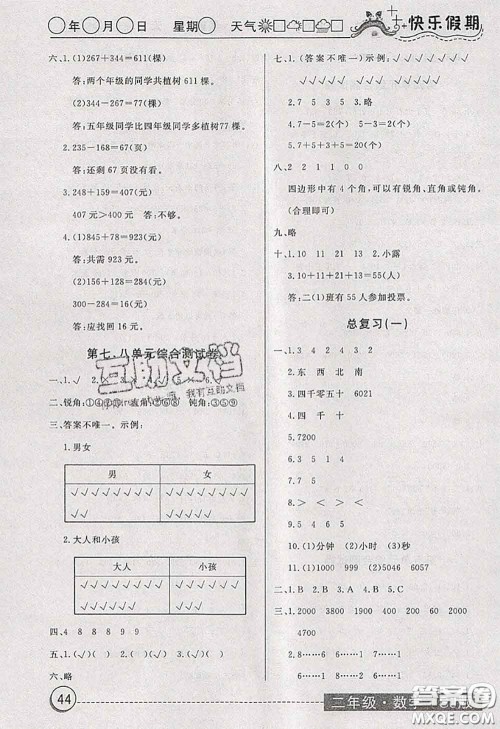 年 月 日 星期 天气
快乐假期
六、1.(1)267+344=611(棵)
答:两个年级的同学共植树611棵。
(2)344-267=77(棵)
答:五年级同学比四年级同学多植树77棵。
2.235-168=67(页)
答:还剩67页没有看。
3.248+159=407(元)
407元>400元 答:不够。
4.(1)845+78=923(元)
答:共需923元。
(2)128+156=284(元)
300-284=16(元)
答:应找回16元。
第七、八单元综合测试卷
二、锐角:①④ 直角: ⑥⑧ 钝角:③⑤⑨
三、答案不唯一,示例:
1.男女
男 女
2.大人和小孩
大人 小孩
四、4 8 8 8 9 9
五、1.(√)( )( ) 2.( )( )(√)
六、略
七、1.(答案不唯一)示例:
2.7 5 3 略
4.7-5=2(个) 5-3=2(个)
5.7+5+3+5=20(个)
八、2 2 1 1 0 0
四边形中有4个角,可以有锐角、直角或钝角。
(合理即可)
九、略
十、1.10 11 21 13 2.小露
3.10+11+21+13=55(人)
答:二(1)班有55人参加投票。
总复习(一)
一、1.3 4 2 4 3 2
2.东 西 北 南
3.四千零五十 6021
4.四 千 十
5.7200
6.2 3 2 5 4
8.> < < < >
9.5 4 6 5
10.(1)分钟 (2)小时 (3)秒
11.(1)1000 (2)1000 4000 45
二、1.B 2.B 3.A 4.B 5.C
三、1.2000 3800 1900 400 2000
1000 4000 400 1100 1500
2.8……1 6……1 8……2
5……1 7……1 6……2
互助文档
我有互助文档
44
二年级·数学
答案圈
MXQE.COM